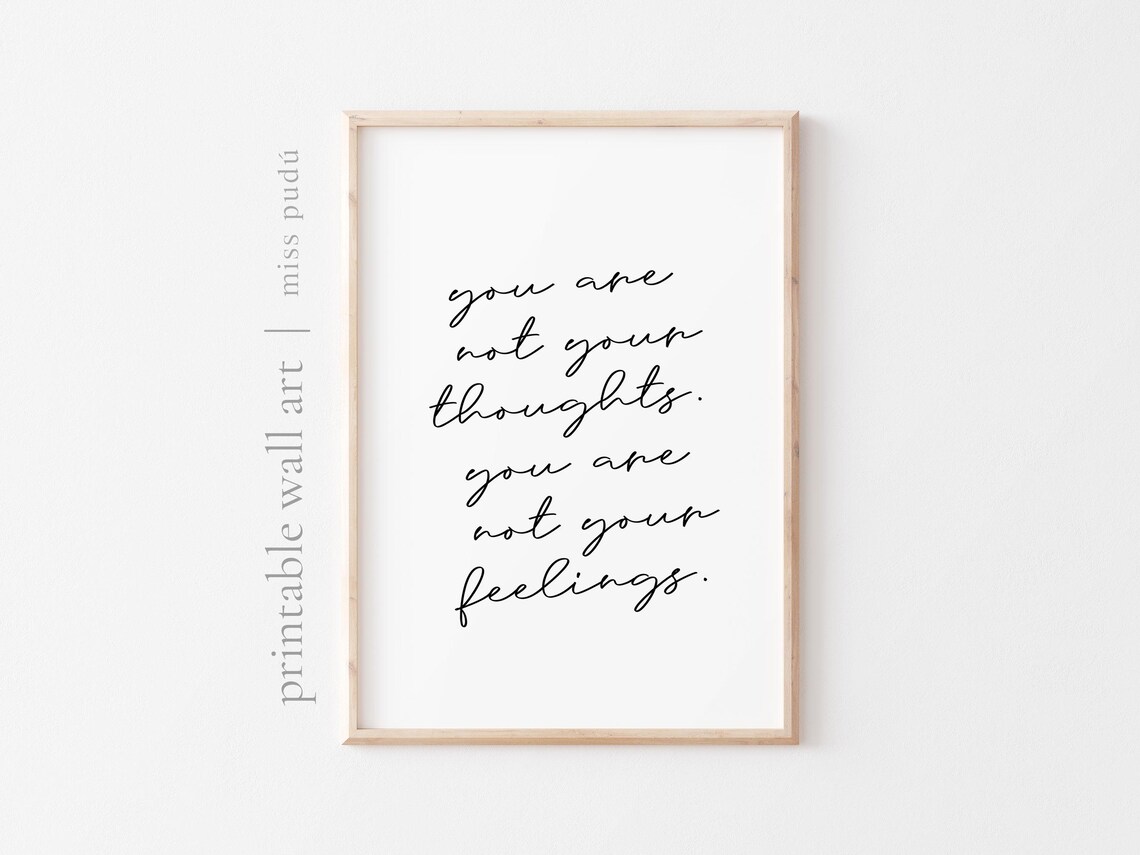 you are
not your
thoughts.
you are
not your
feelings.
printable wall art | miss pudú